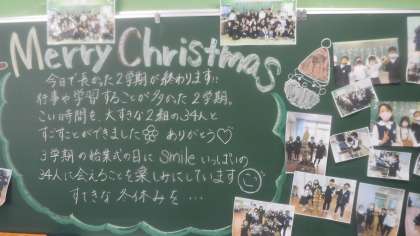 Merry Christmas
今日で長かった2学期が終わります!!
行事や学習することが多かった2学期。
こい時間を、大すきな2組の34人と
すごすことができました ありがとう♡
3学期の始業式の日に smile いっぱいの
34人に会えることを楽しみにしています
すてきな冬休みを…